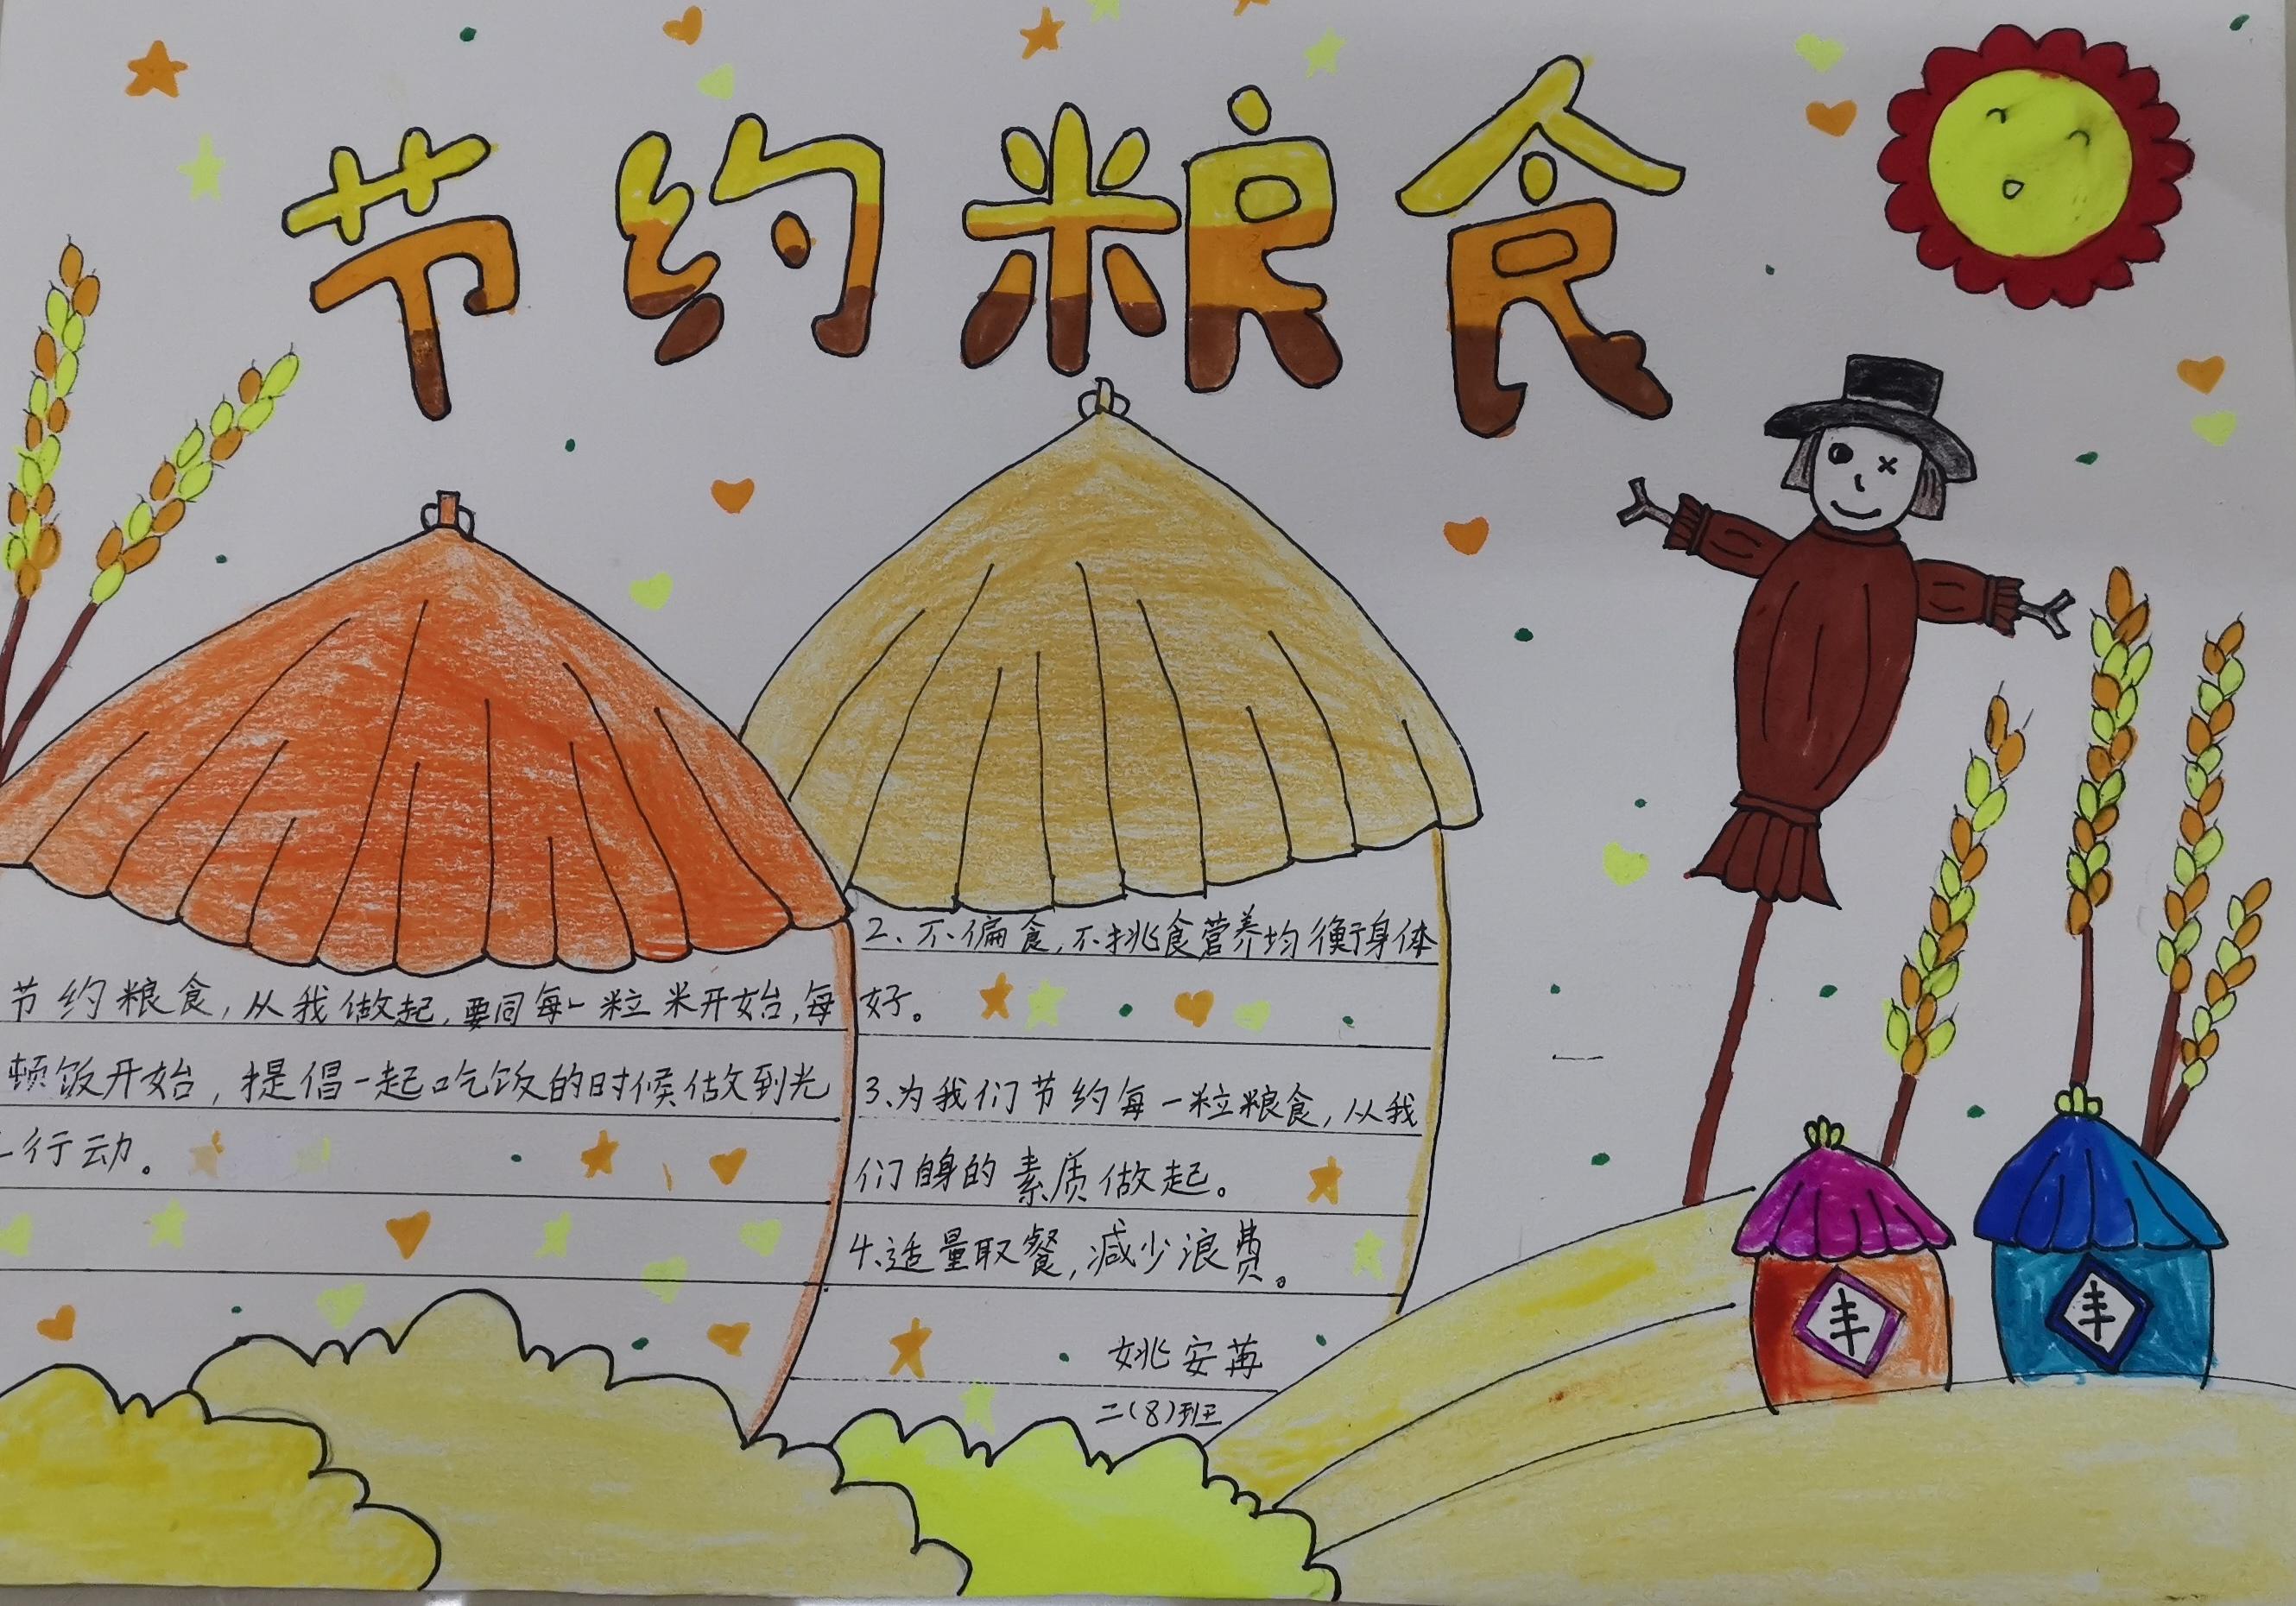 节约粮食
节约粮食，从我做起，要同每一粒米开始，每
顿饭开始，提倡一起吃饭的时候做到光
行动。
2、不偏食，不挑食营养均衡身体
好。
3、为我们节约每一粒粮食，从我
们自身的素质做起。
4、适量取餐，减少浪费。
姚安苒
二(8)班
丰
丰